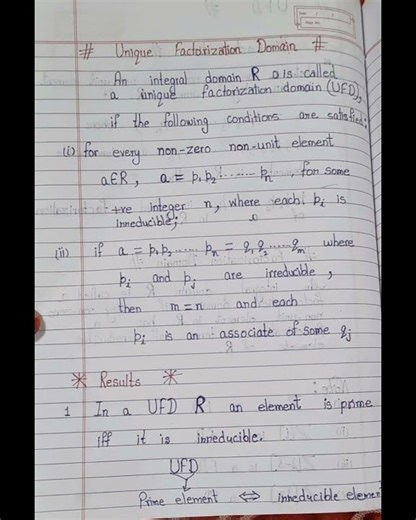 # Unique Factorization Domain #
An integral domain R is called
a unique factorization domain (UFD),
if the following conditions are satisfied:
(i) for every non-zero non-unit element
a∈R, a = p₁p₂ ...... pₙ, for some
+ve integer n, where each pᵢ is
irreducible;
(ii) if a = p₁p₂ ..... pₙ = q₁q₂ ..... qₘ where
pᵢ and pⱼ are irreducible,
then m = n and each
pᵢ is an associate of some qⱼ
* Results *
1 In a UFD R an element is prime
iff it is irreducible.
UFD
↓
Prime element ⇔ irreducible elemen